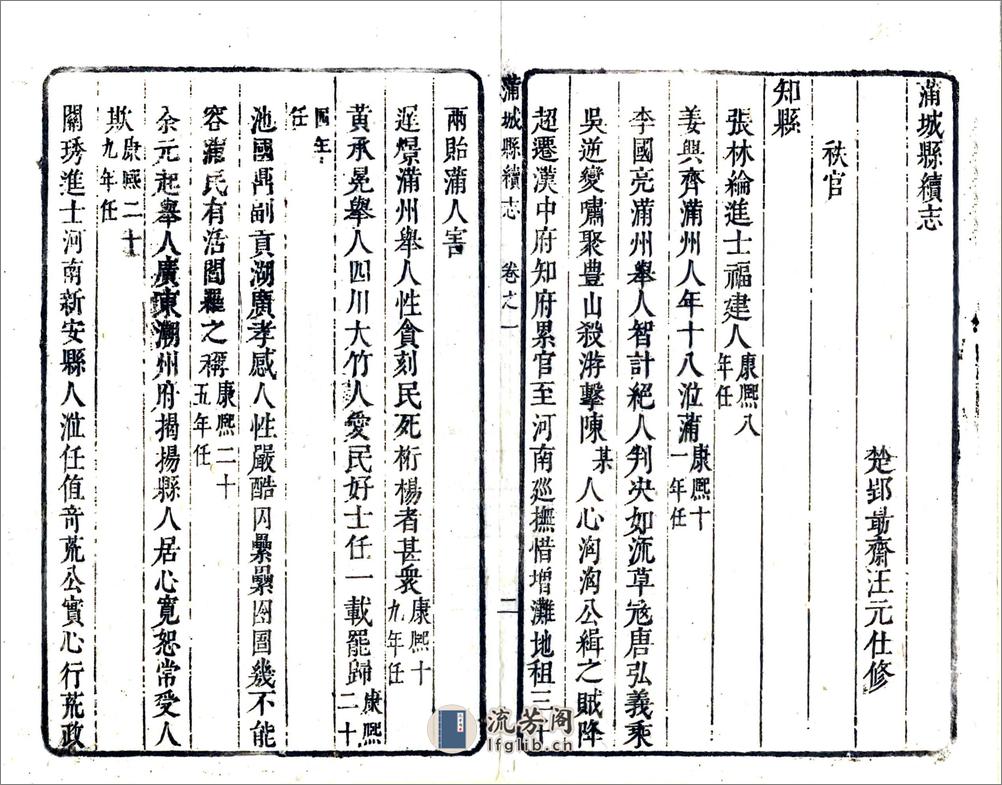 蒲城縣續志
楚郢最齋汪元仕修
秩官
知縣
張林綸進士福建人康熙八年任
姜興齊滿州人年十八涖蒲康熙十一年任
李國亮滿州舉人智計絕人判决如流草宼唐弘義乘
吳逆變嘯聚豊山殺游擊陳某人心洶洶公緝之賊降
超遷漢中府知府累官至河南廵撫惜增灘地租三十
蒲城縣續志 卷之一 二
兩貽蒲人害
遲㷡滿州舉人性貪刻民死桁楊者甚衆康熙十九年任
黃承晃舉人四川大竹人愛民好士任一載罷歸康熙二十
四年任
池國鼎副貢湖廣孝感人性嚴酷囚纍纍囹圄幾不能
容蒲民有活閻羅之稱康熙二十五年任
余元起舉人廣東潮州府揭揚縣人居心寬恕常受人
欺康熙二十九年任
關琇進士河南新安縣人涖任值竒荒公實心行荒政
流芳阁
lfglib.cn